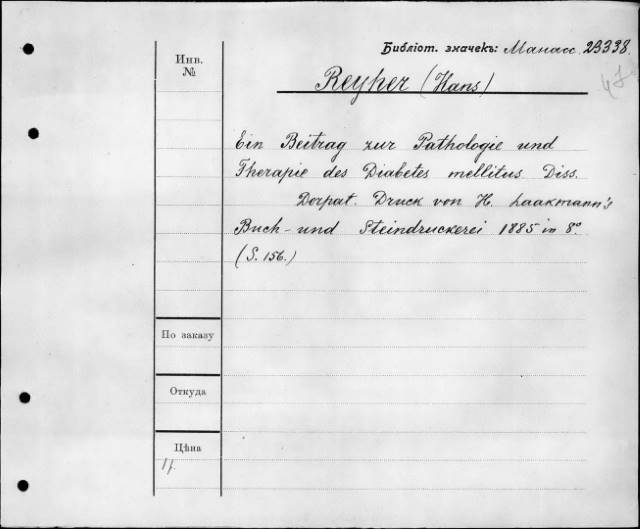 Библіот. значекъ: Манасс. 23338
Инв.
№
Reyher (Hans)
Ein Beitrag zur Pathologie und
Therapie des Diabetes mellitus Diss.
Dorpat. Druck von H. Laakmann's
Buch- und Steindruckerei 1885 in 8°
(S. 156.)
По заказу
Откуда
Цѣна